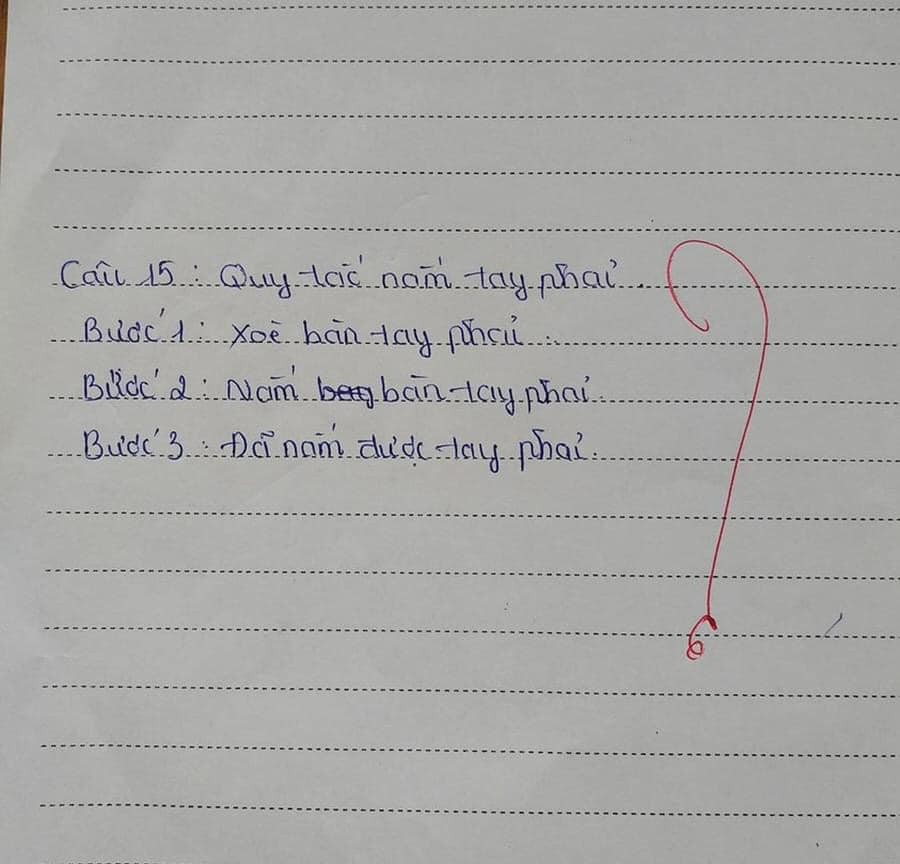 Câu 15: Quy tắc nắm tay phải
Bước 1: Xoè bàn tay phải
Bước 2: Nắm bàn tay phải
Bước 3: Đã nắm được tay phải